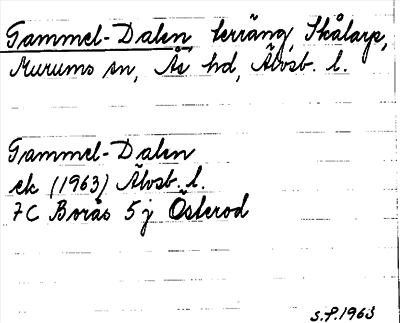 Gammel-Dalen, terräng, Skålarp,
Murums sn, Ås hd, Älvsb. l.
Gammel-Dalen
ek (1963) Älvsb. l.
7C Borås 5j Österod
S.P. 1963